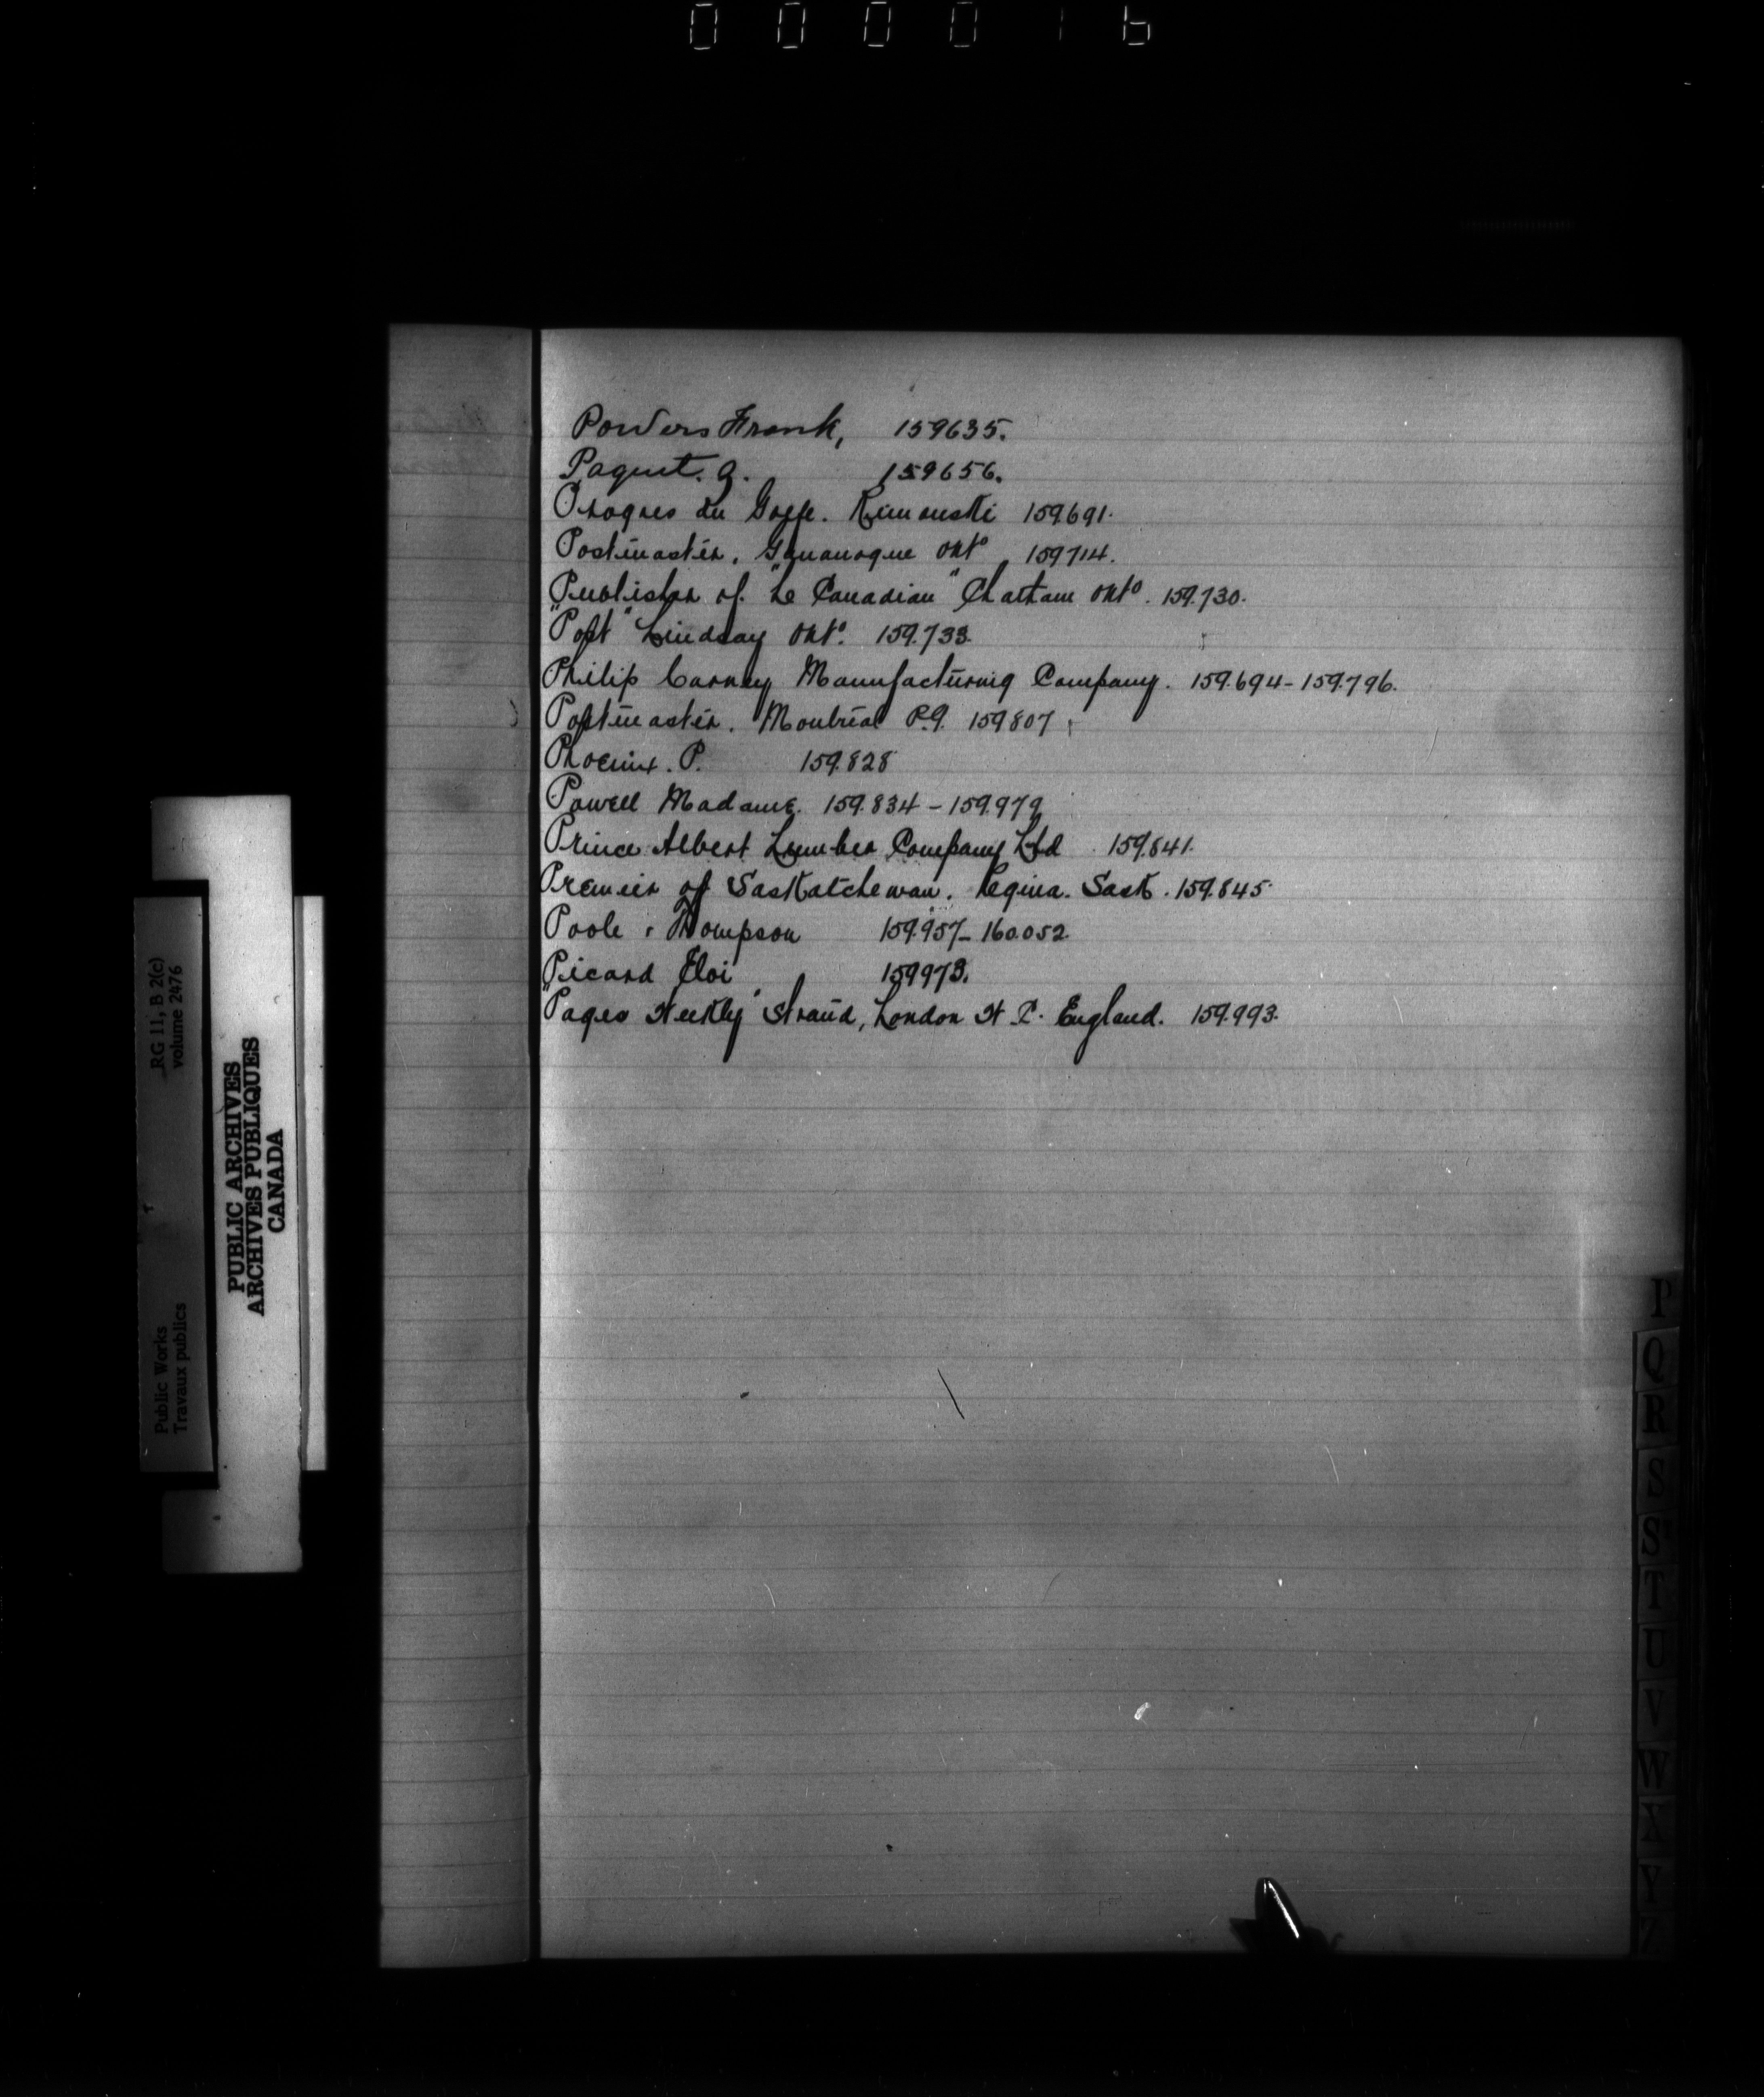 000016
Powers Frank, 159635.
Paquet. J. 159656.
Progres du Golfe. Rimouski 159.691.
Postmaster. Gananoque Onto 159714.
Publisher of "Le Canadian" Chatham Onto. 159.730.
"Post" Lindsay Onto. 159.733.
Philip Carney Manufacturing Company. 159.694-159.796.
Postmaster. Montreal P.Q. 159807
Phoenix. P. 159.828
Powell Madame. 159.834-159.979
Prince Albert Lumber Company Ltd. 159.841.
Premier of Saskatchewan. Regina. Sask. 159.845.
Poole & Thompson 159.957-160.052.
Picard Eloi 159973.
"Pages Weekly" Strand, London W.C. England. 159.993.
RG 11, B 2(c)
volume 2476
Public Works
Travaux publics
PUBLIC ARCHIVES
ARCHIVES PUBLIQUES
CANADA
P
Q
R
S
S
T
U
V
W
X
Y
Z